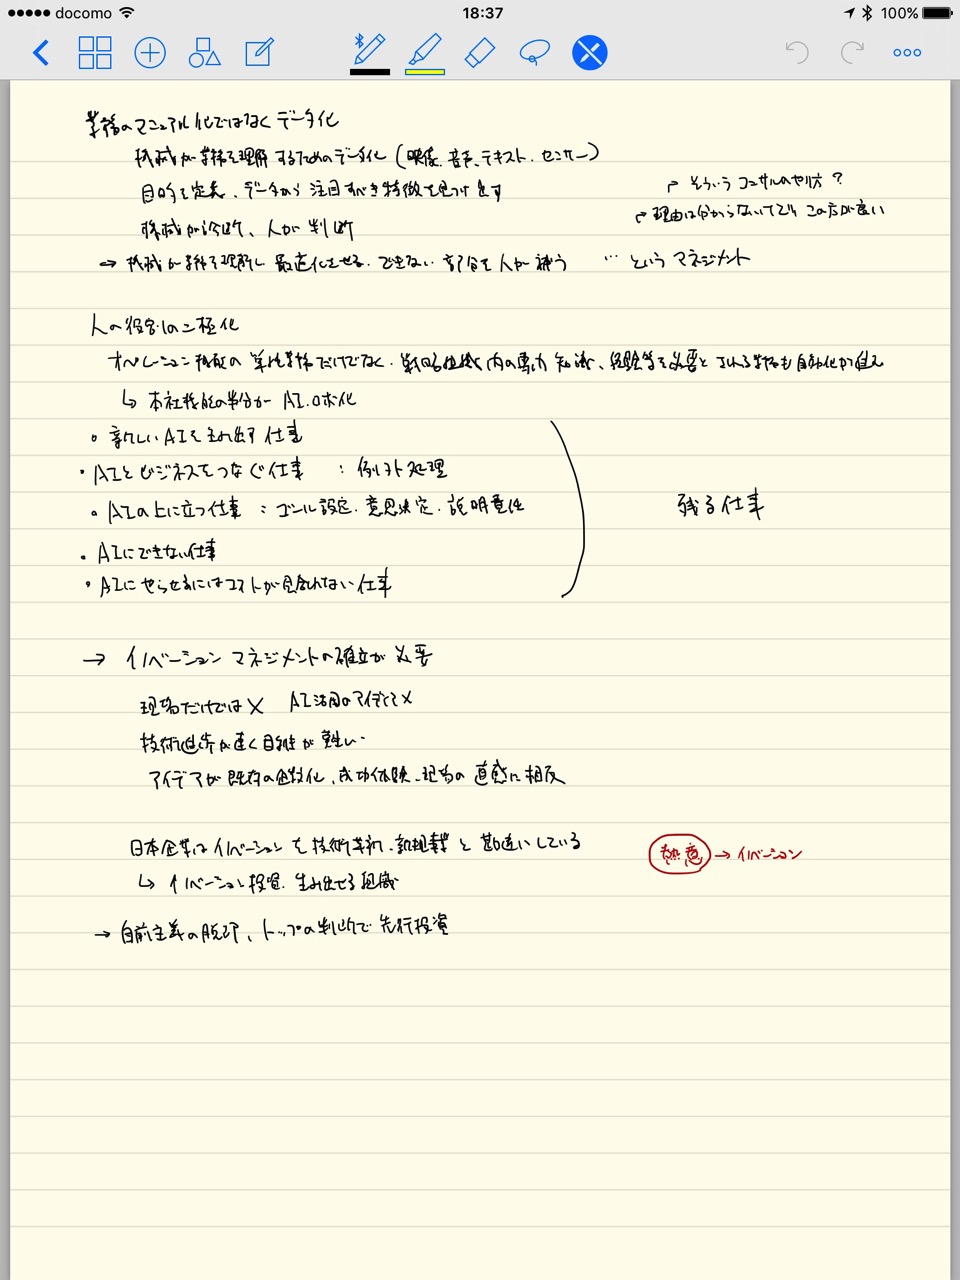 docomo 18:37 100%
業務のマニュアル化ではなくデータ化
機械が業務を理解するためのデータ化(映像、音声、テキスト、センサー)
目的を定義、データから注目すべき特徴を見つけ出す
そういうコンサルのやり方?
理由は分からないけど この方が良い
機械が診断、人が判断
⇒ 機械が業務を理解し最適化させる、できない部分を人が補う … というマネジメント
人の役割は二極化
オペレーション機能の単純業務だけでなく、戦略組織内の専門知識、経験等を必要とされる業務も自動化が進む
↳ 本社機能の半分が AI.ロボ化
• 新しいAIを生み出す仕事
• AIとビジネスをつなぐ仕事 : 例外処理
• AIの上に立つ仕事 : ゴール設定、意思決定、説明責任
残る仕事
• AIにできない仕事
• AIにやらせるにはコストが見合わない仕事
→ イノベーションマネジメントの確立が必要
現場だけでは× AI活用のアイデア×
技術進歩が速く目利きが難しい
アイデアが既存の企業文化、成功体験、現場の直感に相反
日本企業はイノベーションを技術革新、新規事業と勘違いしている
熱意 → イノベーション
↳ イノベーション投資、生み出せる組織
→ 自前主義の脱却、トップの判断で先行投資